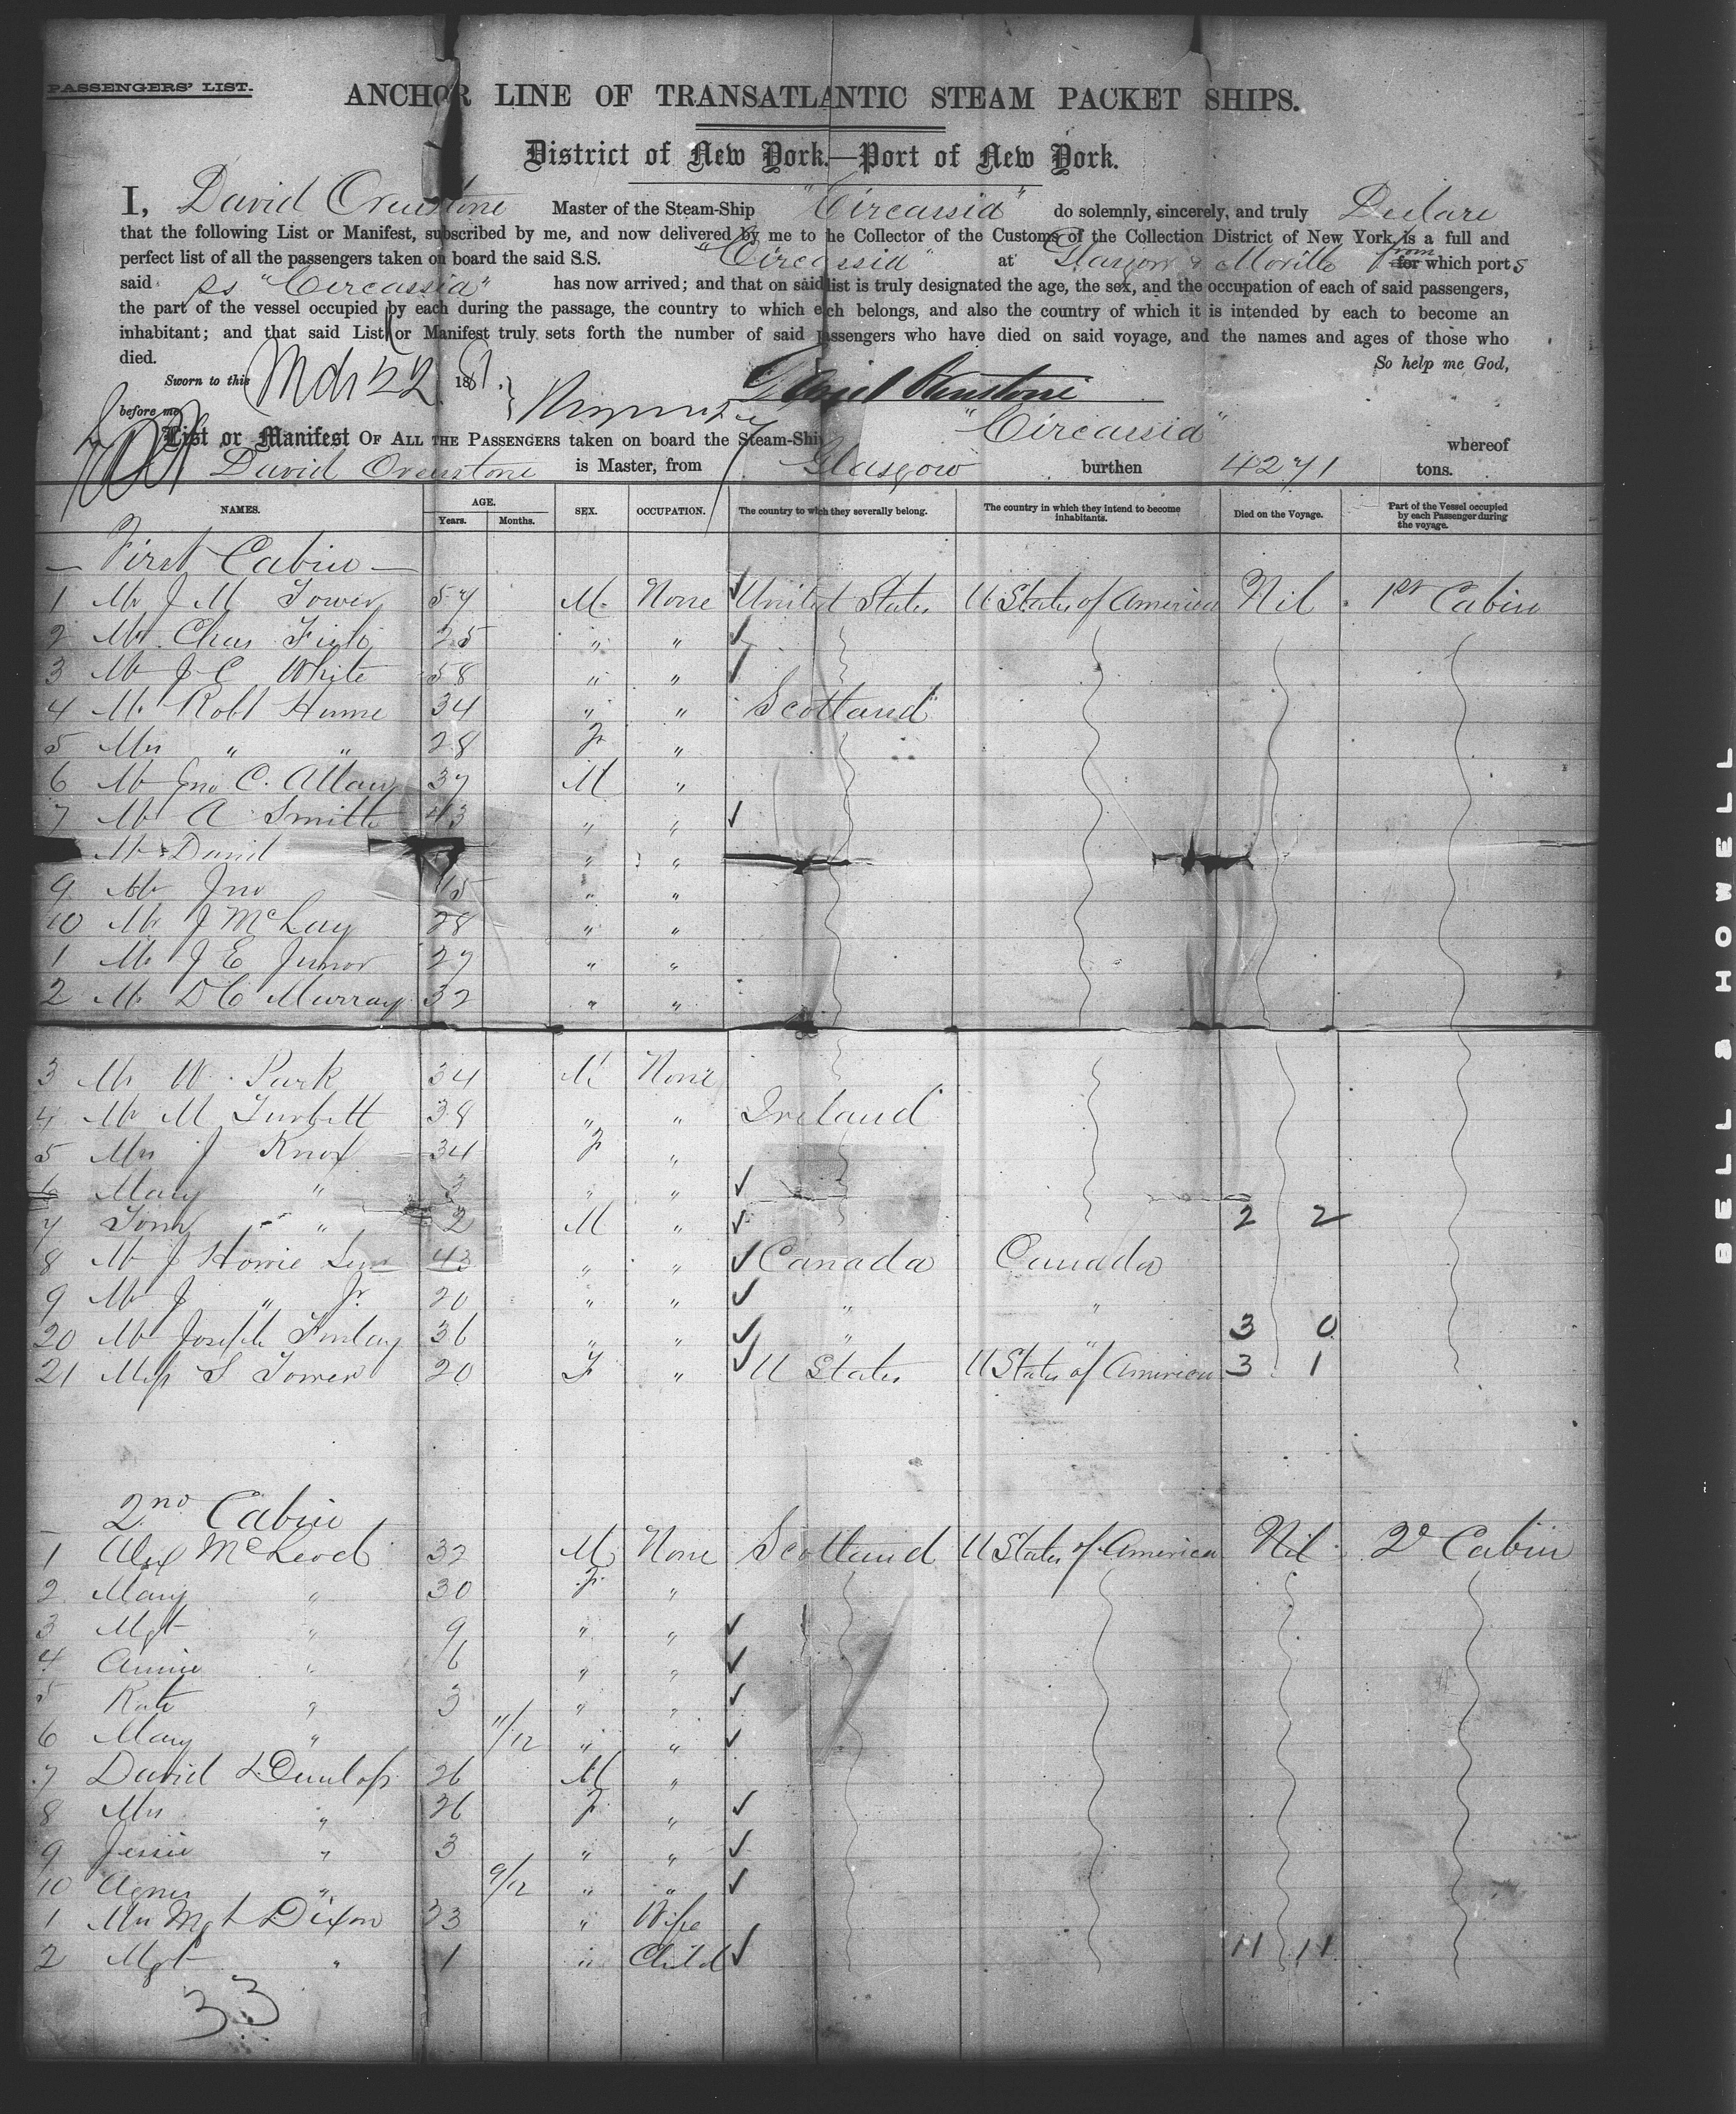 PASSENGERS' LIST.
ANCHOR LINE OF TRANSATLANTIC STEAM PACKET SHIPS.
District of New York.—Port of New York.
I, David Ovenstone Master of the Steam-Ship "Circassia" do solemnly, sincerely, and truly Declare
that the following List or Manifest, subscribed by me, and now delivered by me to the Collector of the Customs of the Collection District of New York, is a full and
perfect list of all the passengers taken on board the said S.S. "Circassia" at Glasgow & Moville from for which ports
said ss "Circassia" has now arrived; and that on said list is truly designated the age, the sex, and the occupation of each of said passengers,
the part of the vessel occupied by each during the passage, the country to which each belongs, and also the country of which it is intended by each to become an
inhabitant; and that said List or Manifest truly sets forth the number of said passengers who have died on said voyage, and the names and ages of those who
died. So help me God,
Sworn to this Mch 22 1881. David Ovenstone
before me
List or Manifest OF ALL THE PASSENGERS taken on board the Steam-Ship "Circassia" whereof
David Ovenstone is Master, from Glasgow burthen 4271 tons.
NAMES. AGE. Years. Months. SEX. OCCUPATION. The country to which they severally belong. The country in which they intend to become inhabitants. Died on the Voyage. Part of the Vessel occupied by each Passenger during the voyage.
— First Cabin —
1 Mr J M Tower 57 M None ✓ United States U States of America Nil 1st Cabin
2 Mr Chas 25 " " ✓
3 Mr J C White 58 " " ✓
4 Mr Robt Hume 34 " " Scotland
5 Mrs " " 28 F "
6 Mr Jno C. Allan 37 M "
7 Mr A Smith 43 " " ✓
Mr David " "
9 Mr Jno 15 " "
10 Mr J McLay 28 " "
1 Mr J E Junor 27 " "
2 Mr D C Murray 32 " "
3 Mr W. Park 34 M None
4 Mr M Turbett 38 " " Ireland
5 Mrs J Knox 34 F "
6 Mary " 3 " " ✓
7 Tom " 2 M " ✓ 2 2
8 Mr J Howie Senr 43 " " ✓ Canada Canada
9 Mr J " Jr 20 " " ✓ " "
20 Mr Joseph Finlay 36 " " ✓ " " 3 0
21 Miss S Tower 20 F " ✓ U States U States of America 3 1
2nd Cabin
1 Alex McLeod 32 M None Scotland U States of America Nil 2d Cabin
2 Mary " 30 F "
3 Mgt " 9 " " ✓
4 Annie " 6 " " ✓
5 Kate " 3 " " ✓
6 Mary " 11/12 " " ✓
7 David Dunlop 26 M "
8 Mrs " 26 F " ✓
9 Jessie " 3 " " ✓
10 Agnes " 9/12 " " ✓
1 Mrs Mgt Dixon 23 " Wife
2 Mgt " 1 " Child ✓ 11 11
33
BELL & HOWELL